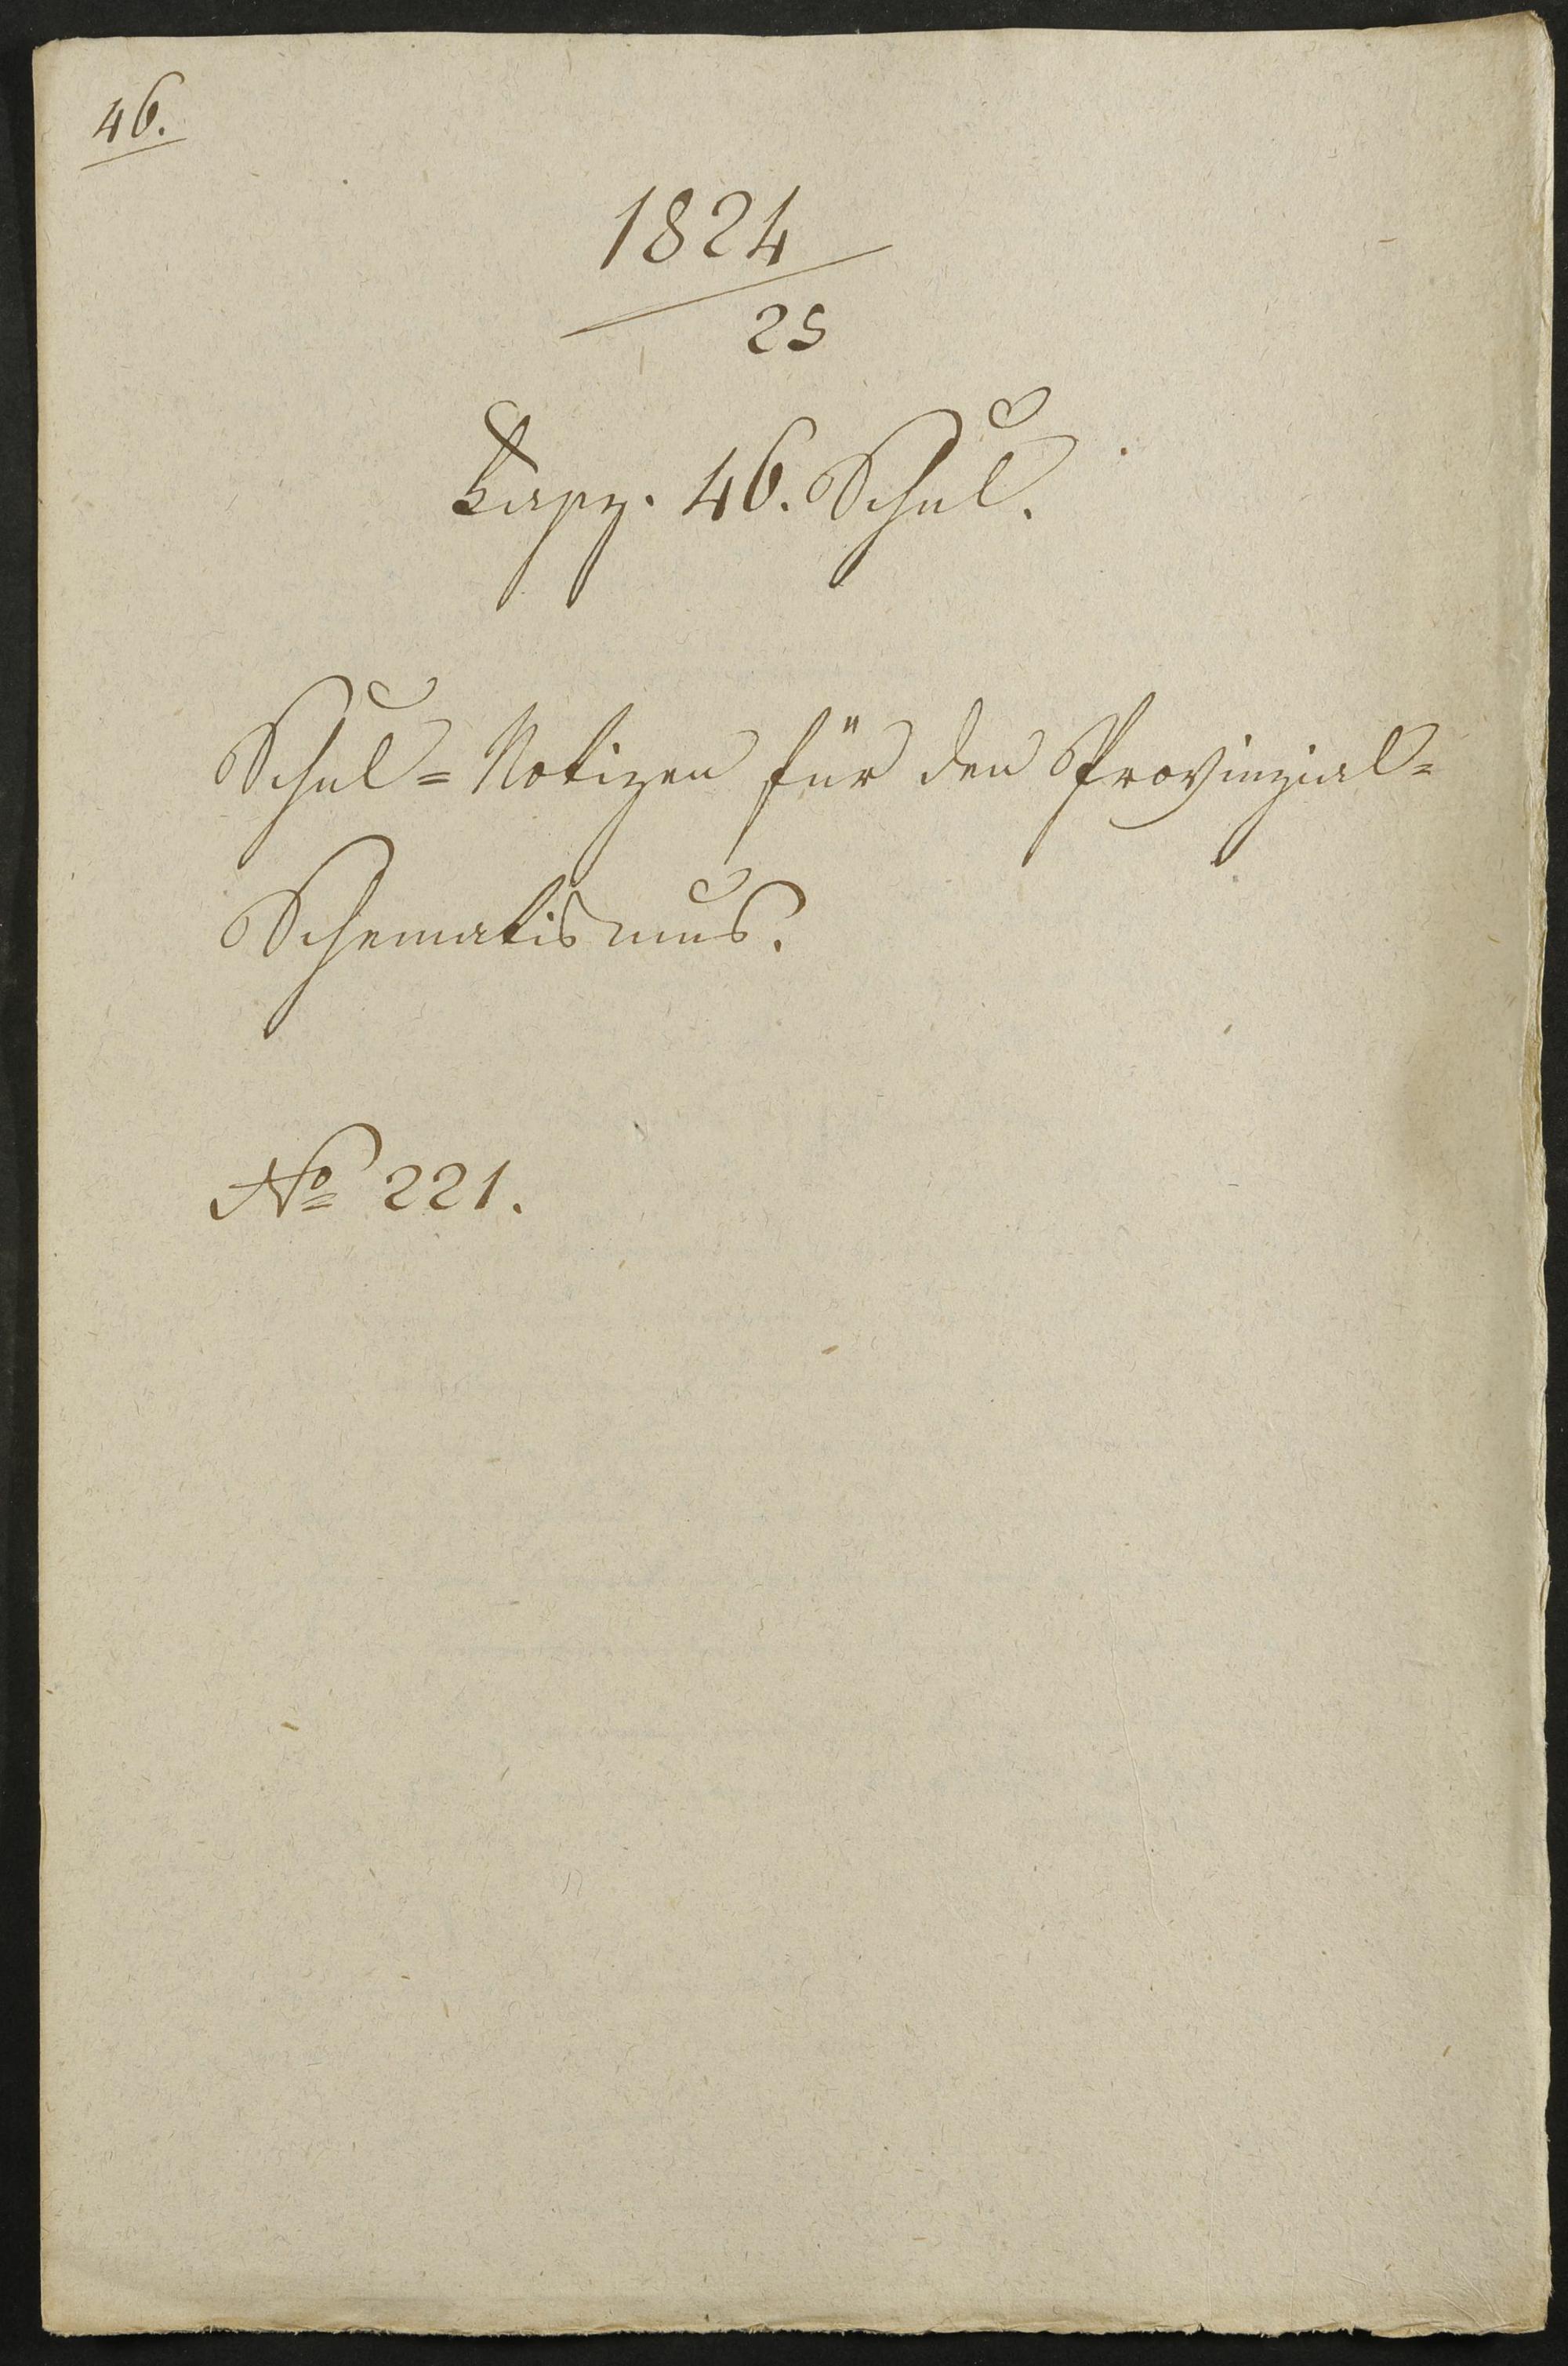 46.
1824
25
Kapp. 46. Schul.
Schul= Notizen für den Provinzial=
Schematismus.
No 221.